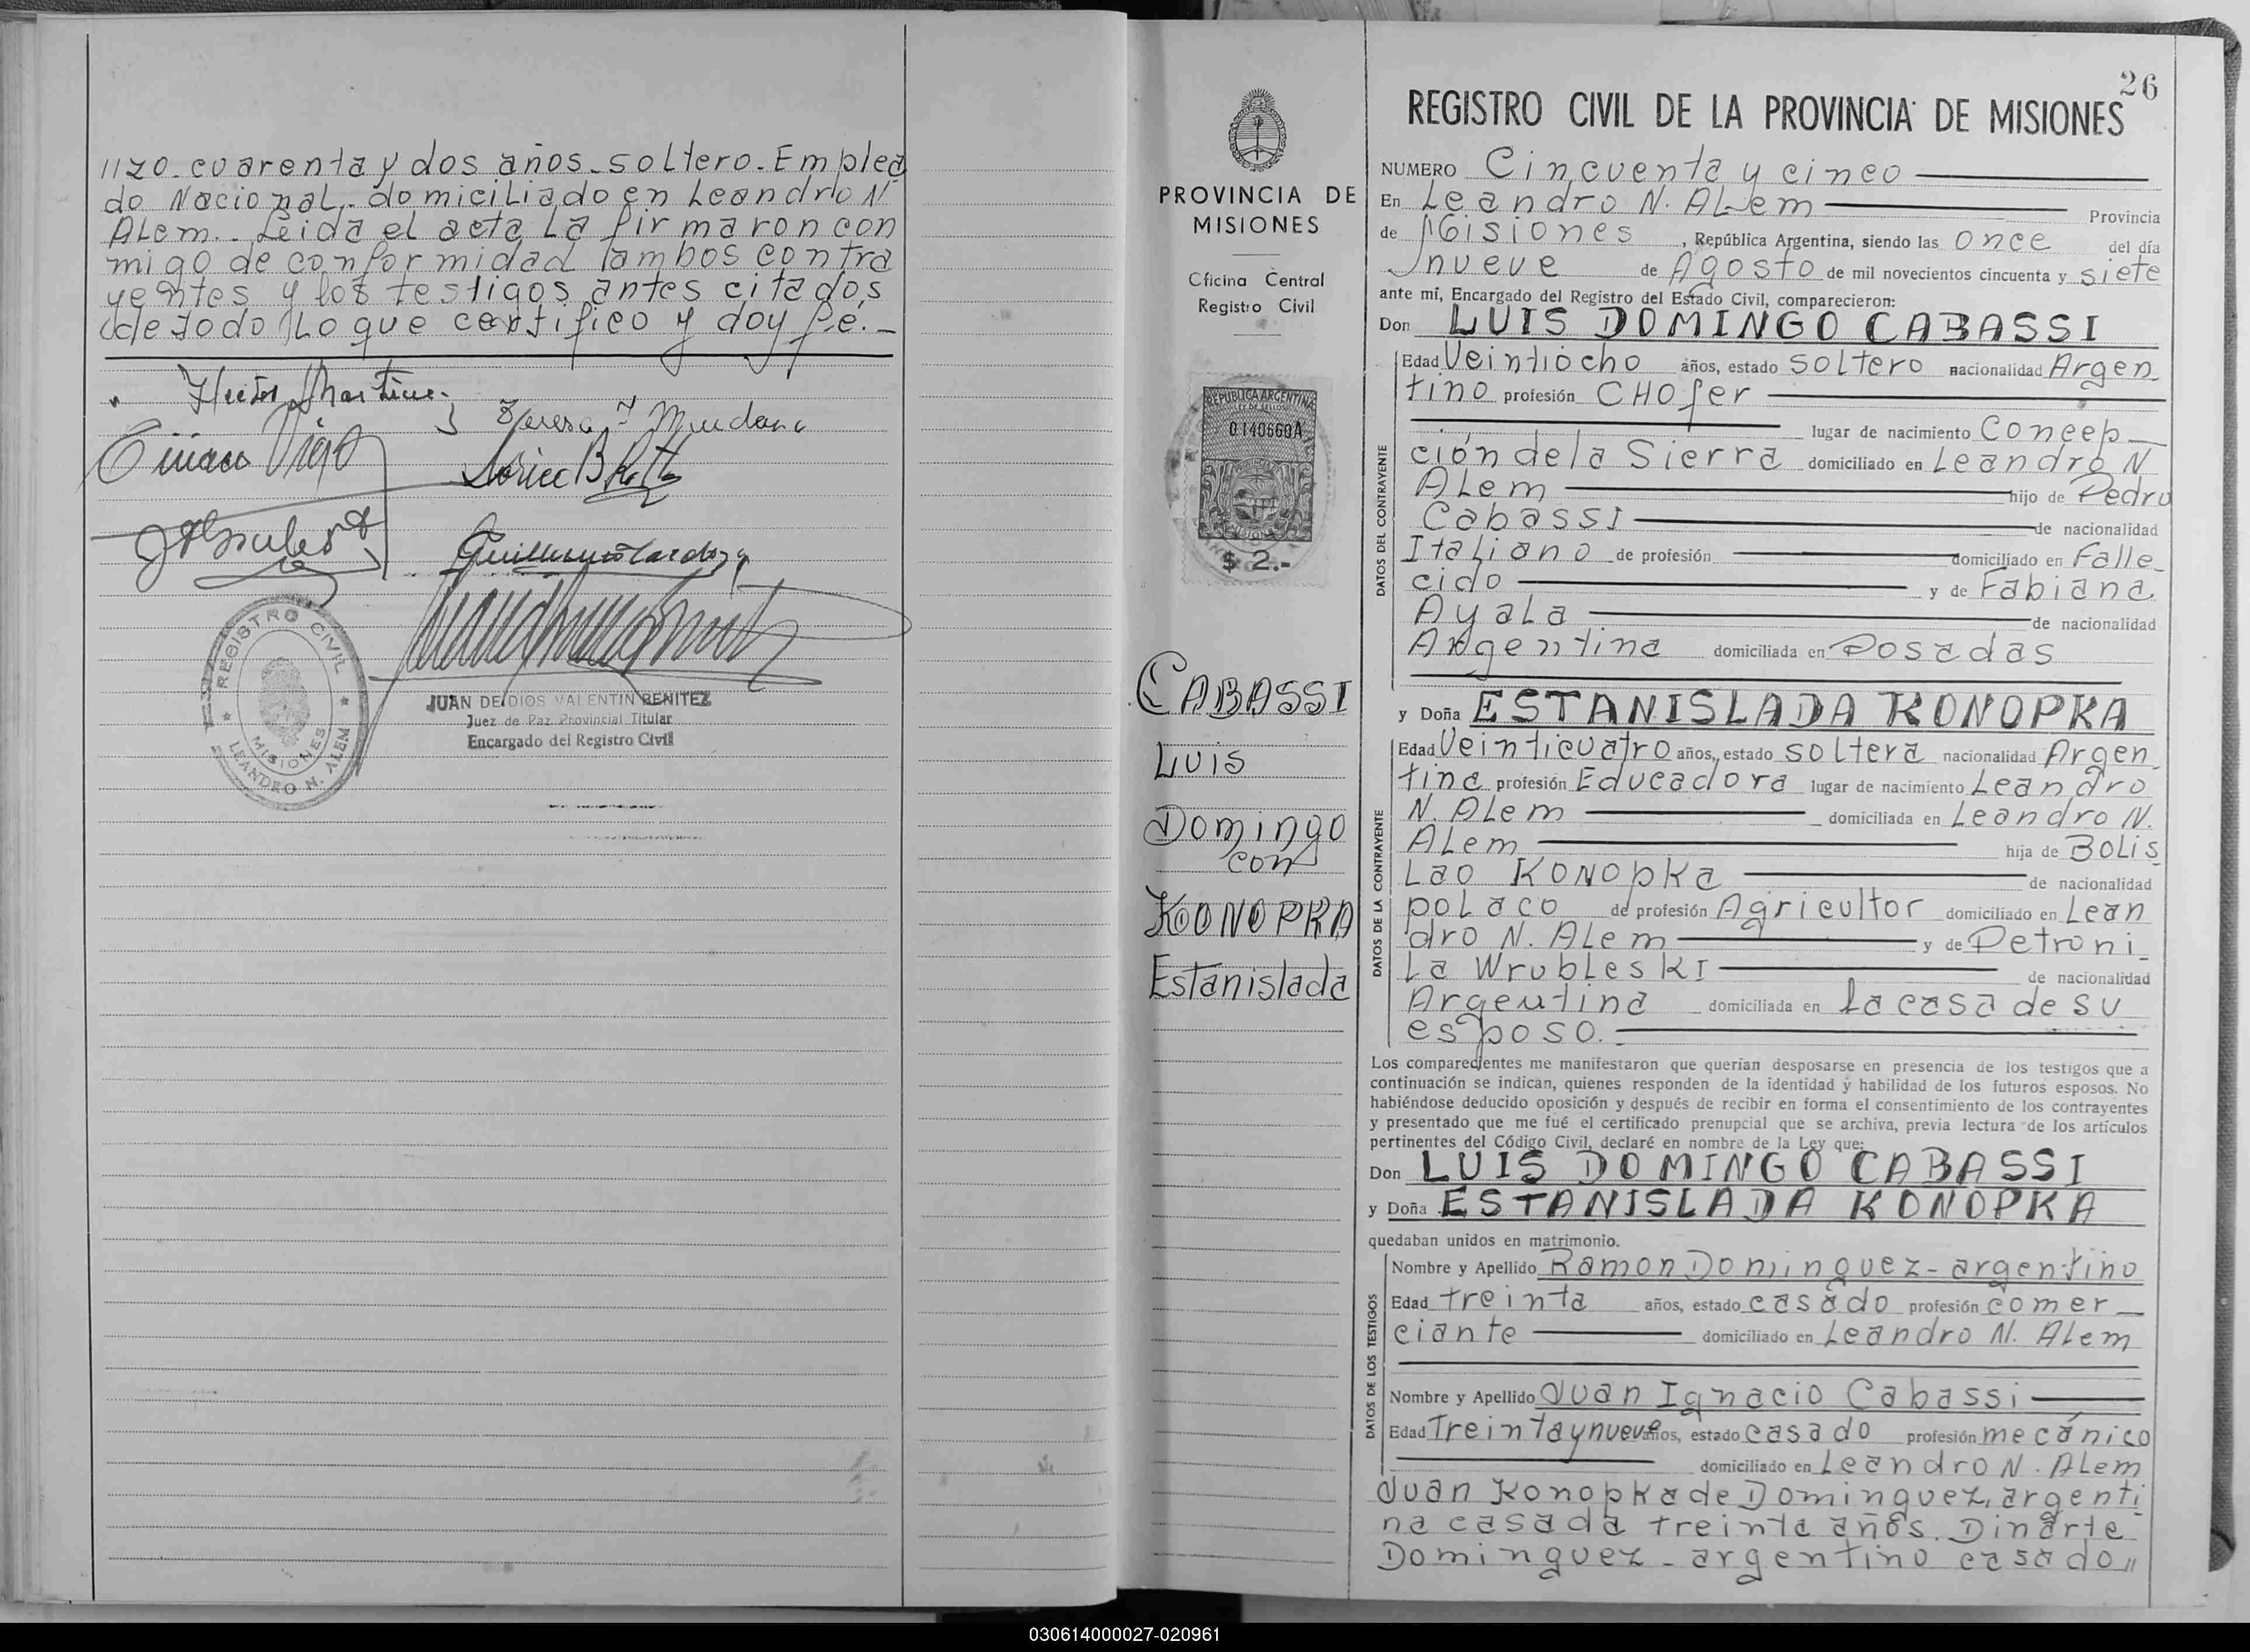 1120. cuarenta y dos años. soltero. Emplea
do Nacional. domiciliado en Leandro N.
Alem. Leida el acta La firmaron con
migo de conformidad ambos contra
yentes y los testigos antes citados
de todo Lo que certifico y doy fé.
Teresa
JUAN DE DIOS VALENTIN BENITEZ
Juez de Paz Provincial Titular
Encargado del Registro Civil
REGISTRO CIVIL
MISIONES
LEANDRO N. ALEM
PROVINCIA DE
MISIONES
Oficina Central
Registro Civil
REPUBLICA ARGENTINA
LEY DE SELLOS
0.140660A
$ 2.-
CABASSI
Luis
Domingo
con
KONOPKA
Estanislada
26
REGISTRO CIVIL DE LA PROVINCIA DE MISIONES
NUMERO Cincuenta y cinco
En Leandro N. ALem Provincia
de Misiones, República Argentina, siendo las once del día
nueve de Agosto de mil novecientos cincuenta y siete
ante mí, Encargado del Registro del Estado Civil, comparecieron:
Don LUIS DOMINGO CABASSI
DATOS DEL CONTRAYENTE
Edad Veintiocho años, estado soltero nacionalidad Argen
tino profesión CHOfer
lugar de nacimiento Concep
ción de la Sierra domiciliado en Leandro N
ALem hijo de Pedro
Cabassi de nacionalidad
Italiano de profesión domiciliado en Falle
cido y de Fabiana
Ayala de nacionalidad
Argentina domiciliada en Posadas
y Doña ESTANISLADA KONOPKA
DATOS DE LA CONTRAYENTE
Edad Veinticuatro años, estado soltera nacionalidad Argen
tina profesión Educadora lugar de nacimiento Leandro
N. ALem domiciliada en Leandro N.
ALem hija de BOLis
Lao Konopka de nacionalidad
poLaco de profesión Agricultor domiciliado en Lean
dro N. ALem y de Petroni
La WrubLeski de nacionalidad
Argentina domiciliada en la casa de su
esposo.
Los comparecientes me manifestaron que querían desposarse en presencia de los testigos que a
continuación se indican, quienes responden de la identidad y habilidad de los futuros esposos. No
habiéndose deducido oposición y después de recibir en forma el consentimiento de los contrayentes
y presentado que me fué el certificado prenupcial que se archiva, previa lectura de los artículos
pertinentes del Código Civil, declaré en nombre de la Ley que:
Don LUIS DOMINGO CABASSI
y Doña ESTANISLADA KONOPKA
quedaban unidos en matrimonio.
DATOS DE LOS TESTIGOS
Nombre y Apellido Ramon Dominguez - argentino
Edad treinta años, estado casado profesión comer
ciante domiciliado en Leandro N. Alem
Nombre y Apellido Juan Ignacio Cabassi
Edad Treinta y nueve años, estado casado profesión mecánico
domiciliado en Leandro N. ALem
Juan Konopka de Dominguez, argenti
na casada treinta años. Dinarte
Dominguez - argentino casado
030614000027-020961